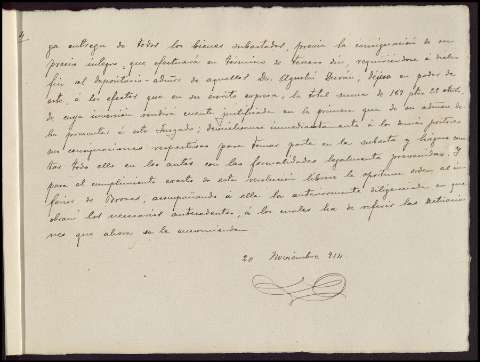 ga entrega de todos los bienes subastados, previa la consignación de su
precio íntegro, que efectuará en término de tercero día, requiriéndose á
al depositario-admor de aquellos Dn. Agustín déjese en poder de
este, á los efectos que en su escrito expresa, la total suma de 167 ptas 22 cts.
de cuya inversión rendirá cuenta justificada en la primera que de su admón.
ha presente á este Juzgado; devuélvanse inmediatamente á los demás postores
sus consignaciones respectivas para tomar parte en la subasta y hágase cons
tar todo ello en los autos con las formalidades legalmente prevenidas. Y
para el cumplimiento exacto de esta resolución líbrese la oportuna orden al in
ferior de acompañando á ella la anteriormente diligenciada en que
obran los necesarios antecedentes, á los cuales ha de referir las
nes que ahora se le encomiendan
20 Noviembre 914.